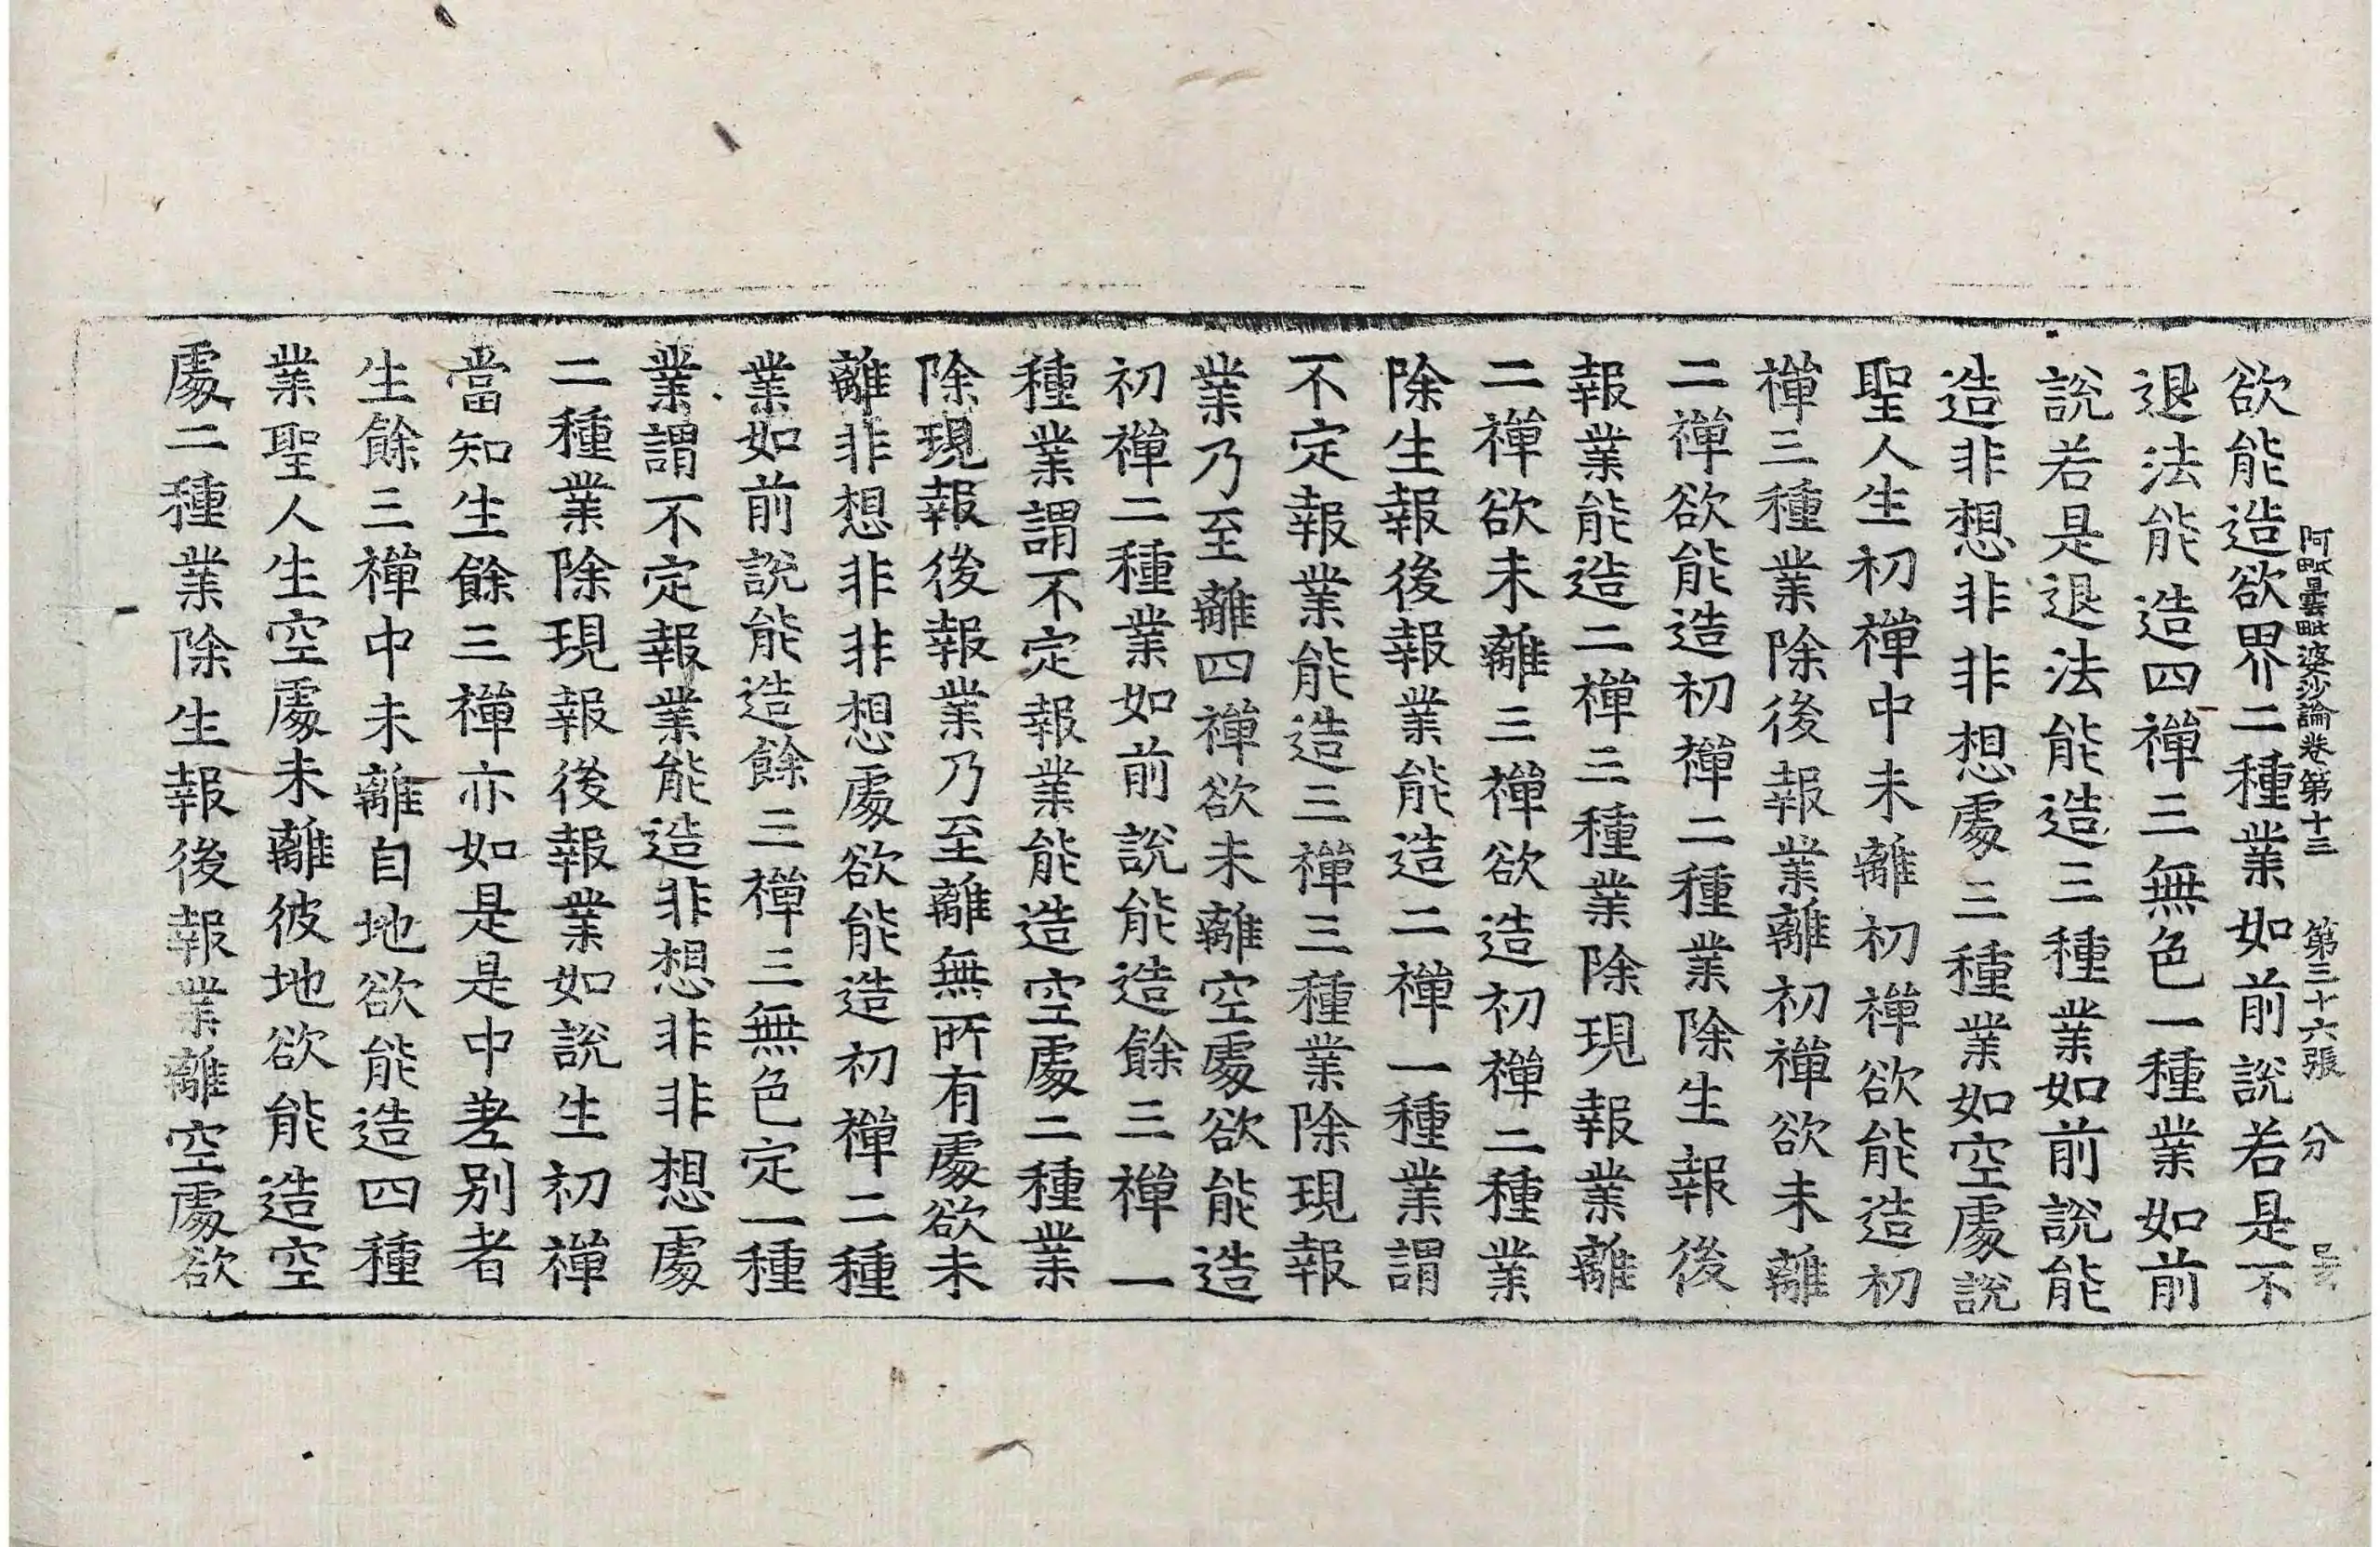 阿毗曇毗婆沙論卷第十三　第三十六張　分
欲能造欲界二種業如前說若是不
退法能造四禪三無色一種業如前
說若是退法能造三種業如前說能
造非想非非想處三種業如空處說
聖人生初禪中未離初禪欲能造初
禪三種業除後報業離初禪欲未離
二禪欲能造初禪二種業除生報後
報業能造二禪三種業除現報業離
二禪欲未離三禪欲造初禪二種業
除生報後報業能造二禪一種業謂
不定報業能造三禪三種業除現報
業乃至離四禪欲未離空處欲能造
初禪二種業如前說能造餘三禪一
種業謂不定報業能造空處二種業
除現報後報業乃至離無所有處欲未
離非想非非想處欲能造初禪二種
業如前說能造餘三禪三無色定一種
業謂不定報業能造非想非非想處
二種業除現報後報業如說生初禪
當知生餘三禪亦如是是中差別者
生餘三禪中未離自地欲能造四種
業聖人生空處未離彼地欲能造空
處二種業除生報後報業離空處欲